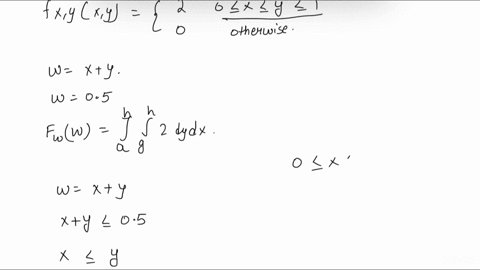 fx,y(x,y) = { 2 0≤x≤y≤1
0 otherwise.
w= x+y.
w=0.5
F_w(w) = ∫_a^b ∫_g^h 2 dydx.
0 ≤ x
w= x+y
x+y ≤ 0.5
x ≤ y